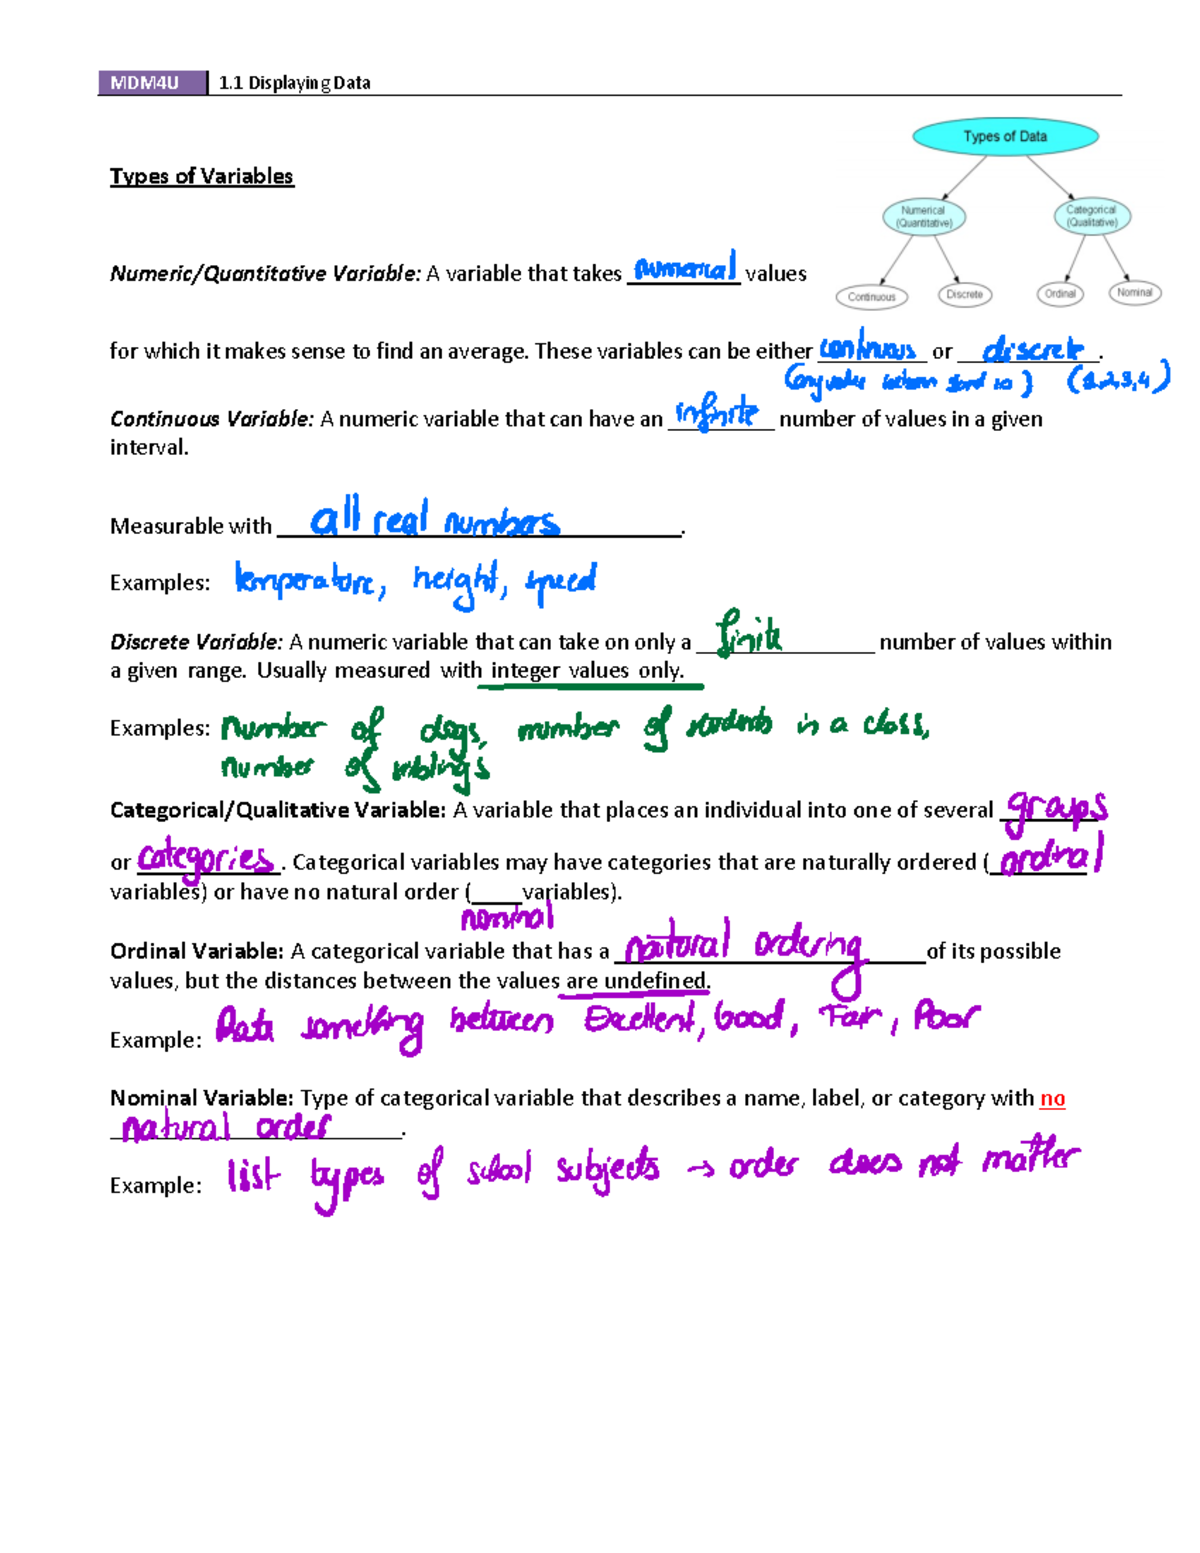 MDM4U 1.1 Displaying Data
Types of Data
Types of Variables
Numerical Categorical
(Quantitative) (Qualitative)
Numeric/Quantitative Variable: A variable that takes numerical values
Continuous Discrete Ordinal Nominal
for which it makes sense to find an average. These variables can be either continuous or discrete.
(any value between 9 and 10) (1,2,3,4)
Continuous Variable: A numeric variable that can have an infinite number of values in a given
interval.
Measurable with all real numbers.
Examples: temperature, height, speed
Discrete Variable: A numeric variable that can take on only a finite number of values within
a given range. Usually measured with integer values only.
Examples: number of dogs, number of students in a class,
number of siblings
Categorical/Qualitative Variable: A variable that places an individual into one of several groups
or categories. Categorical variables may have categories that are naturally ordered (ordinal
variables) or have no natural order (____variables).
nominal
Ordinal Variable: A categorical variable that has a natural ordering of its possible
values, but the distances between the values are undefined.
Example: Rate something between Excellent, Good, Fair, Poor
Nominal Variable: Type of categorical variable that describes a name, label, or category with no
natural order.
Example: list types of school subjects → order does not matter